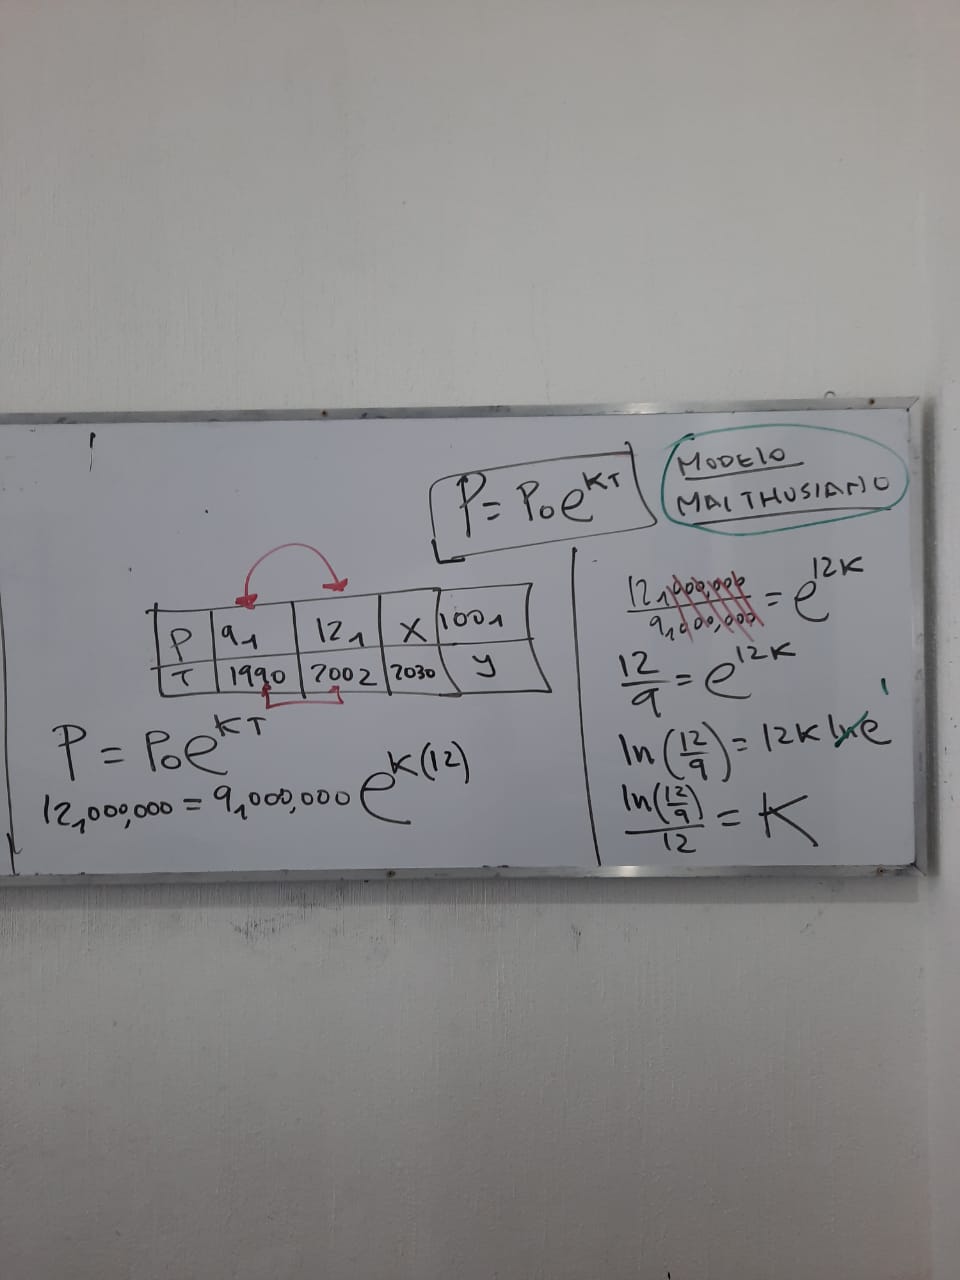 P = P₀e^KT
MODELO
MALTHUSIANO
P 9, 12, X 100,
T 1990 2002 2030 y
P = P₀e^KT
12,000,000 = 9,000,000 e^K(12)
12,000,000/9,000,000 = e^12K
12/9 = e^12K
ln(12/9) = 12K ln e 1
ln(12/9)/12 = K